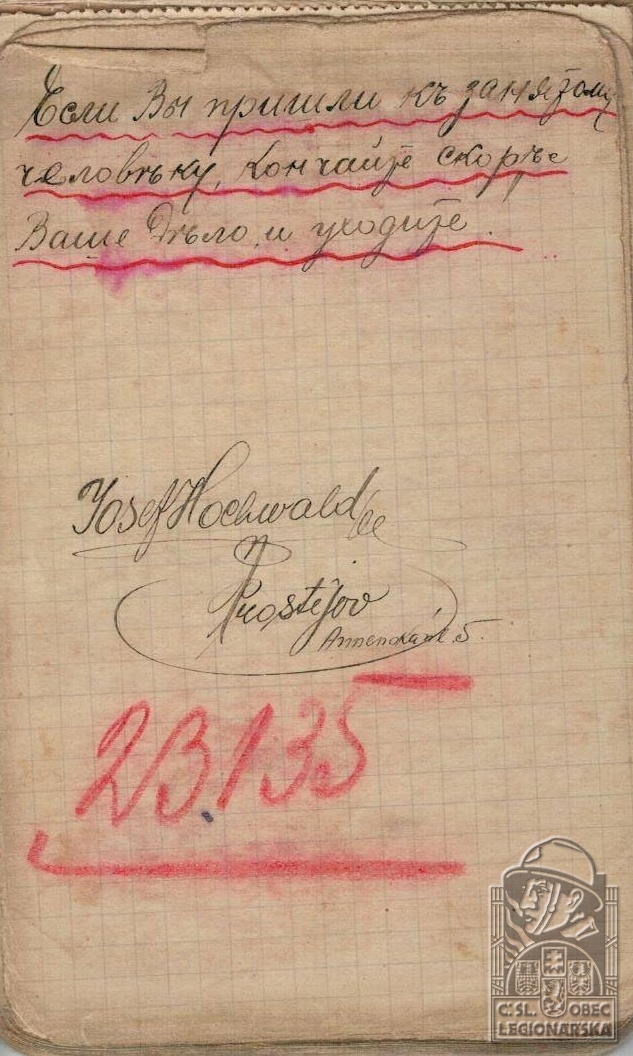 Если Вы пришли къ занятому
человѣку, кончайте скорѣе
Ваше дѣло, и уходите.
Josef Hochwald
Prostějov
5.
23.135
Č.SL. OBEC
LEGIONÁŘSKÁ